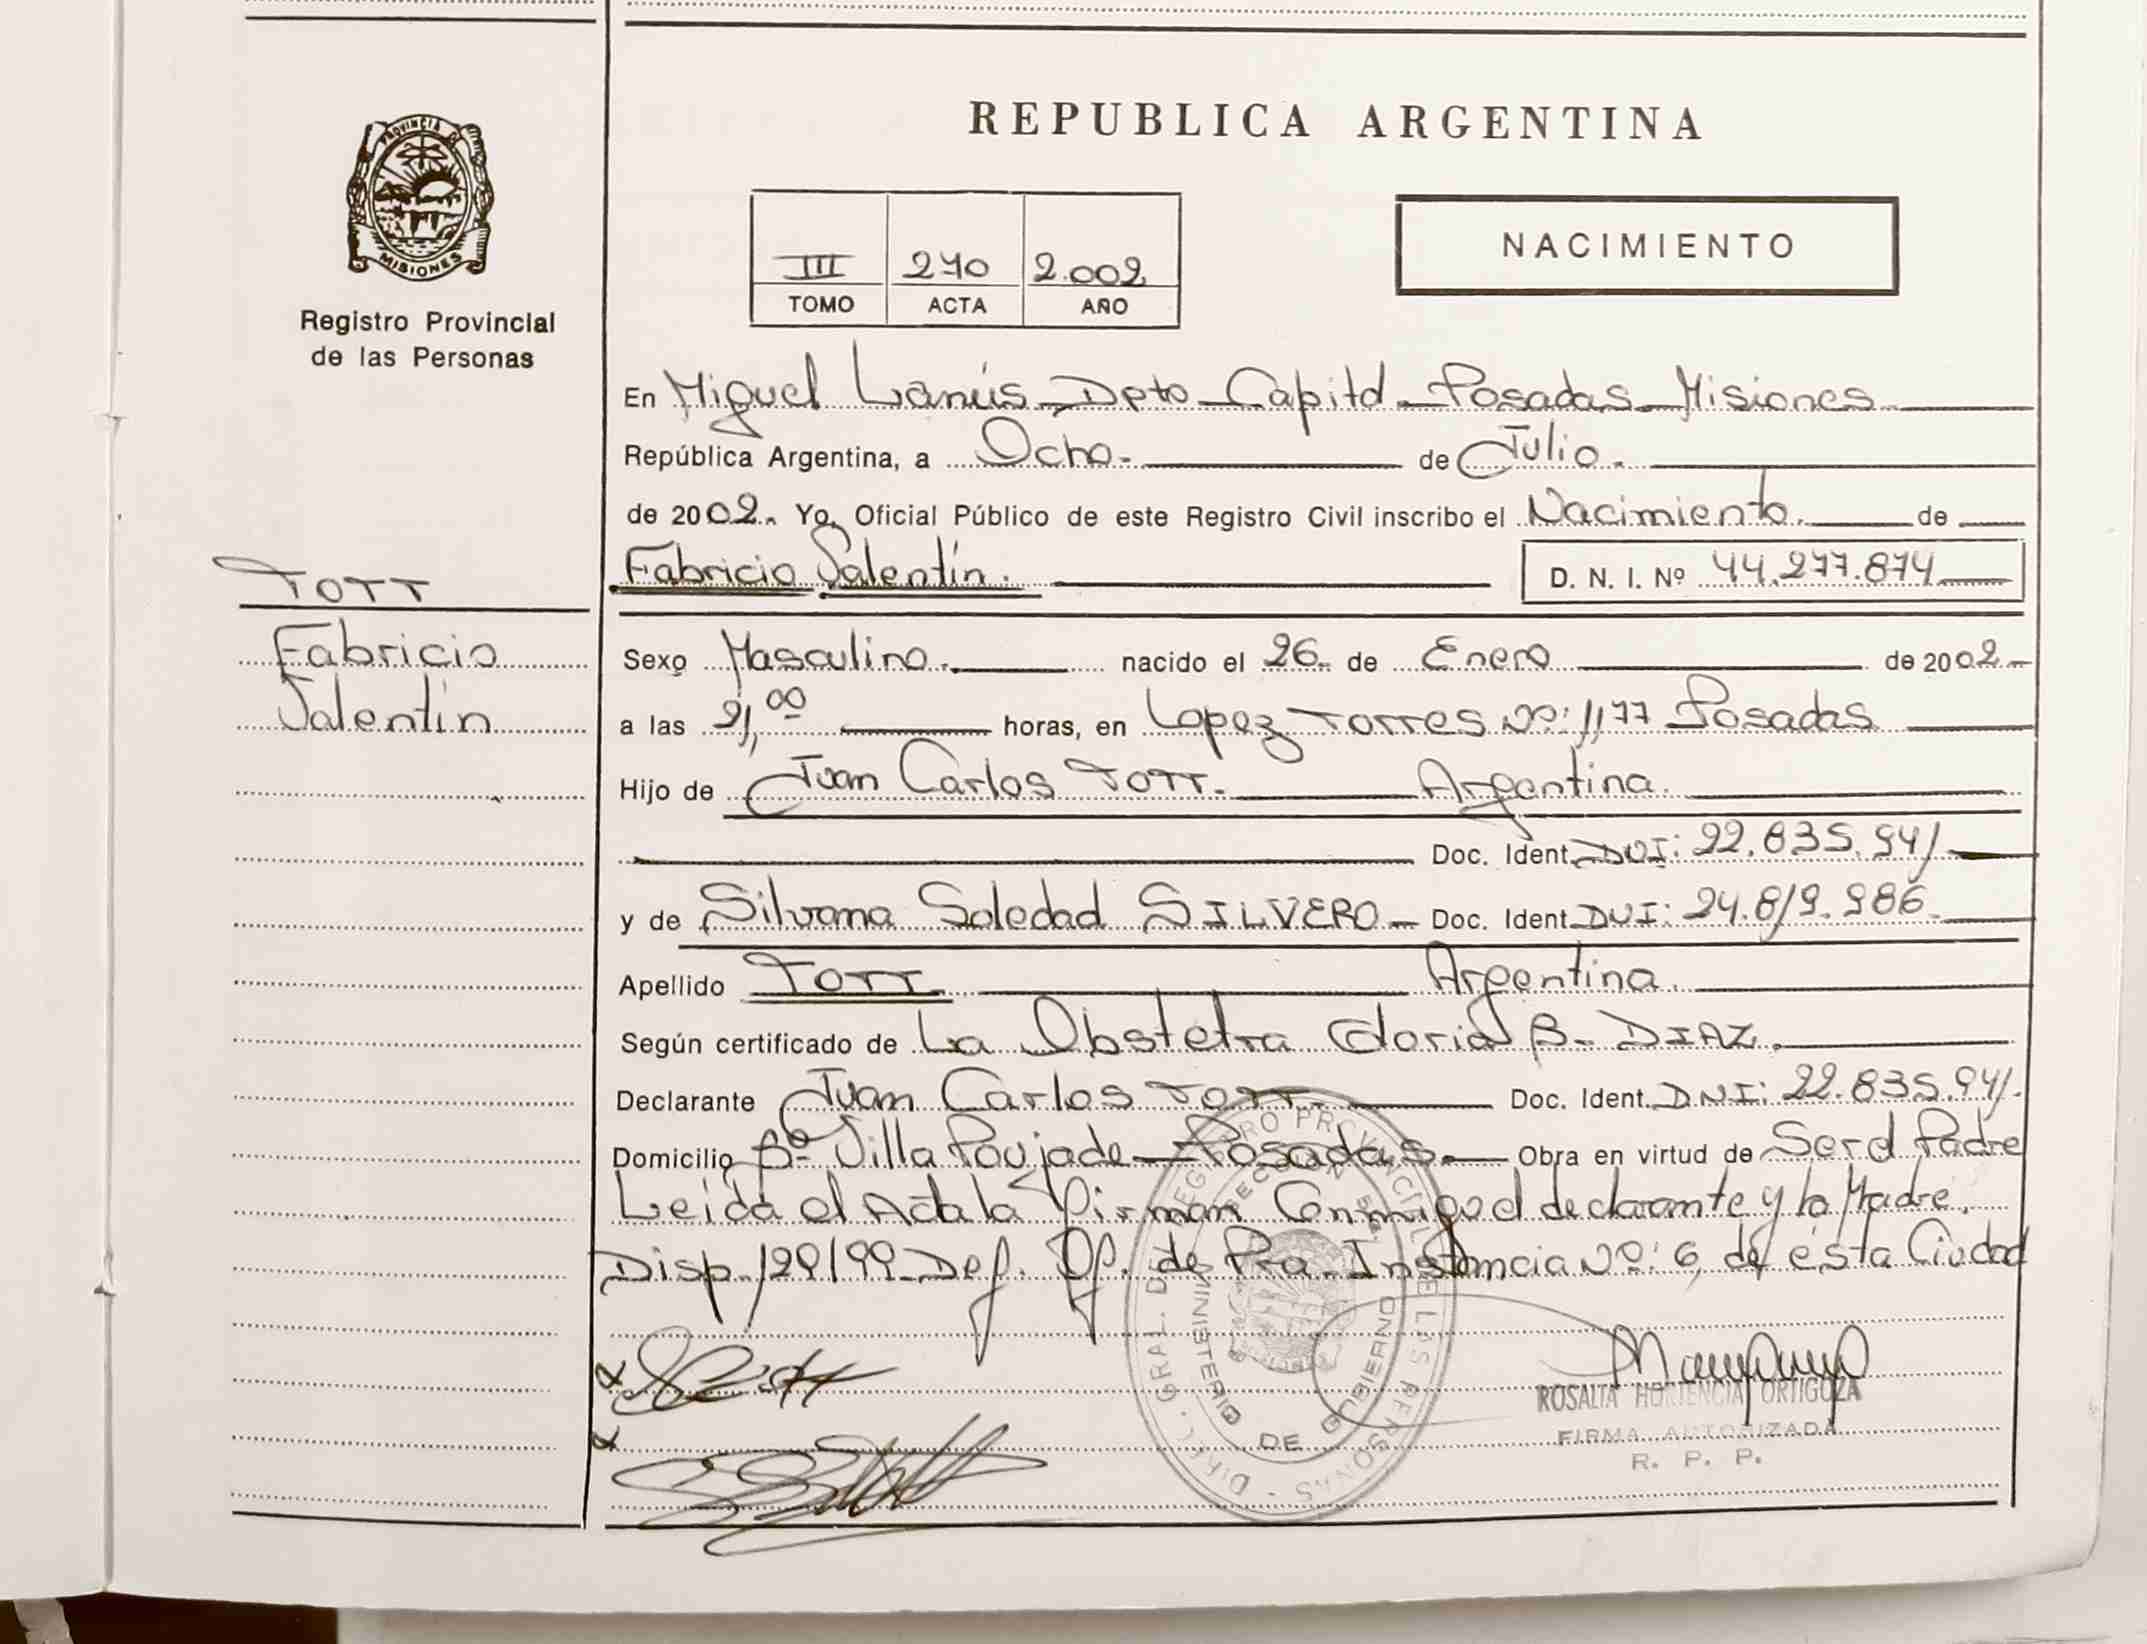 REPUBLICA ARGENTINA
PROVINCIA DE
MISIONES
Registro Provincial
de las Personas
III 270 2.002
TOMO ACTA AÑO
NACIMIENTO
En Miguel Lanús - Dpto - Capital - Posadas - Misiones
República Argentina, a Ocho. de Julio.
de 2002. Yo, Oficial Público de este Registro Civil inscribo el Nacimiento. de
Fabricio Valentín. D. N. I. Nº 44.277.874
TOTT
Fabricio
Valentín
Sexo Masculino. nacido el 26 de Enero de 2002
a las 21,00 horas, en Lopez Torres Nº: 1177 Posadas
Hijo de Juan Carlos TOTT. Argentina.
Doc. Ident. DNI: 22.835.941
y de Silvana Soledad SILVERO - Doc. Ident. DNI: 24.819.986
Apellido TOTT Argentina.
Según certificado de La Obstetra Gloria B. DIAZ.
Declarante Juan Carlos TOTT. Doc. Ident. DNI: 22.835.941.
Domicilio Bº Villa Poujade - Posadas. Obra en virtud de Ser el Padre
Leída el Acta la Firman Conmigo el declarante y la Madre.
Disp. 129/99 Def. Of. de Pra. Instancia Nº: 6, de ésta Ciudad
DIREC. GRAL. DEL REGISTRO PROVINCIAL DE LAS PERSONAS
MINISTERIO DE GOBIERNO
ROSALIA HORTENCIA ORTIGOZA
FIRMA AUTORIZADA
R. P. P.